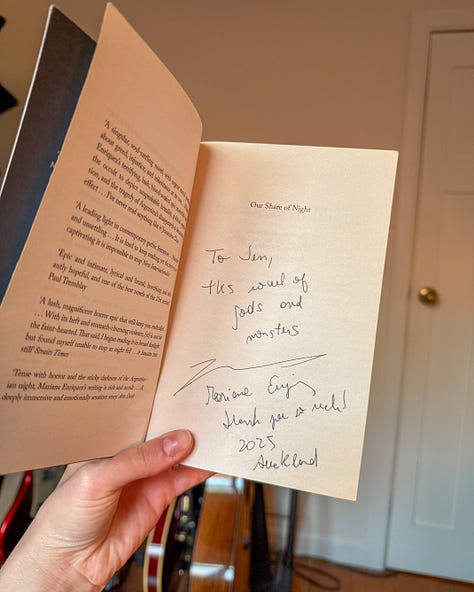 'A singular, soul-rattling novel, with urgent
about greed, injustice, and inheritance at its core
Enriquez's terrifying, lush, blood-soaked
the occult to depict unspeakable
tion, and the tragedy of Argentina's disappeared
effect . . . I've never read anything like it'
'A leading light in contemporary gothic literature
and unsettling . . . It is hard to keep reading, yet the
captivating it is impossible to stop' New Internationalist
'Epic and intimate, lyrical and brutal, horrifying and
antly hopeful, and one of the best novels of the 21st century'
Paul Tremblay
'A lush, magnificent horror epic that will keep you enthralled
. . . With its heft and stomach-churning violence, [it] is not for
the faint-hearted. That said, I began reading it in broad daylight
but found myself unable to stop as night fell
still' Straits Times
'Tense with horror and the sticky darkness of the Argentin-
ian night, Mariana Enriquez's writing is rich and vivid . . . A
deeply immersive and emotionally sensitive story' Art Desk
Our Share of Night
To Jen,
this world of
gods and
monsters
Mariana Enriquez
thank you so much!
2025
Auckland